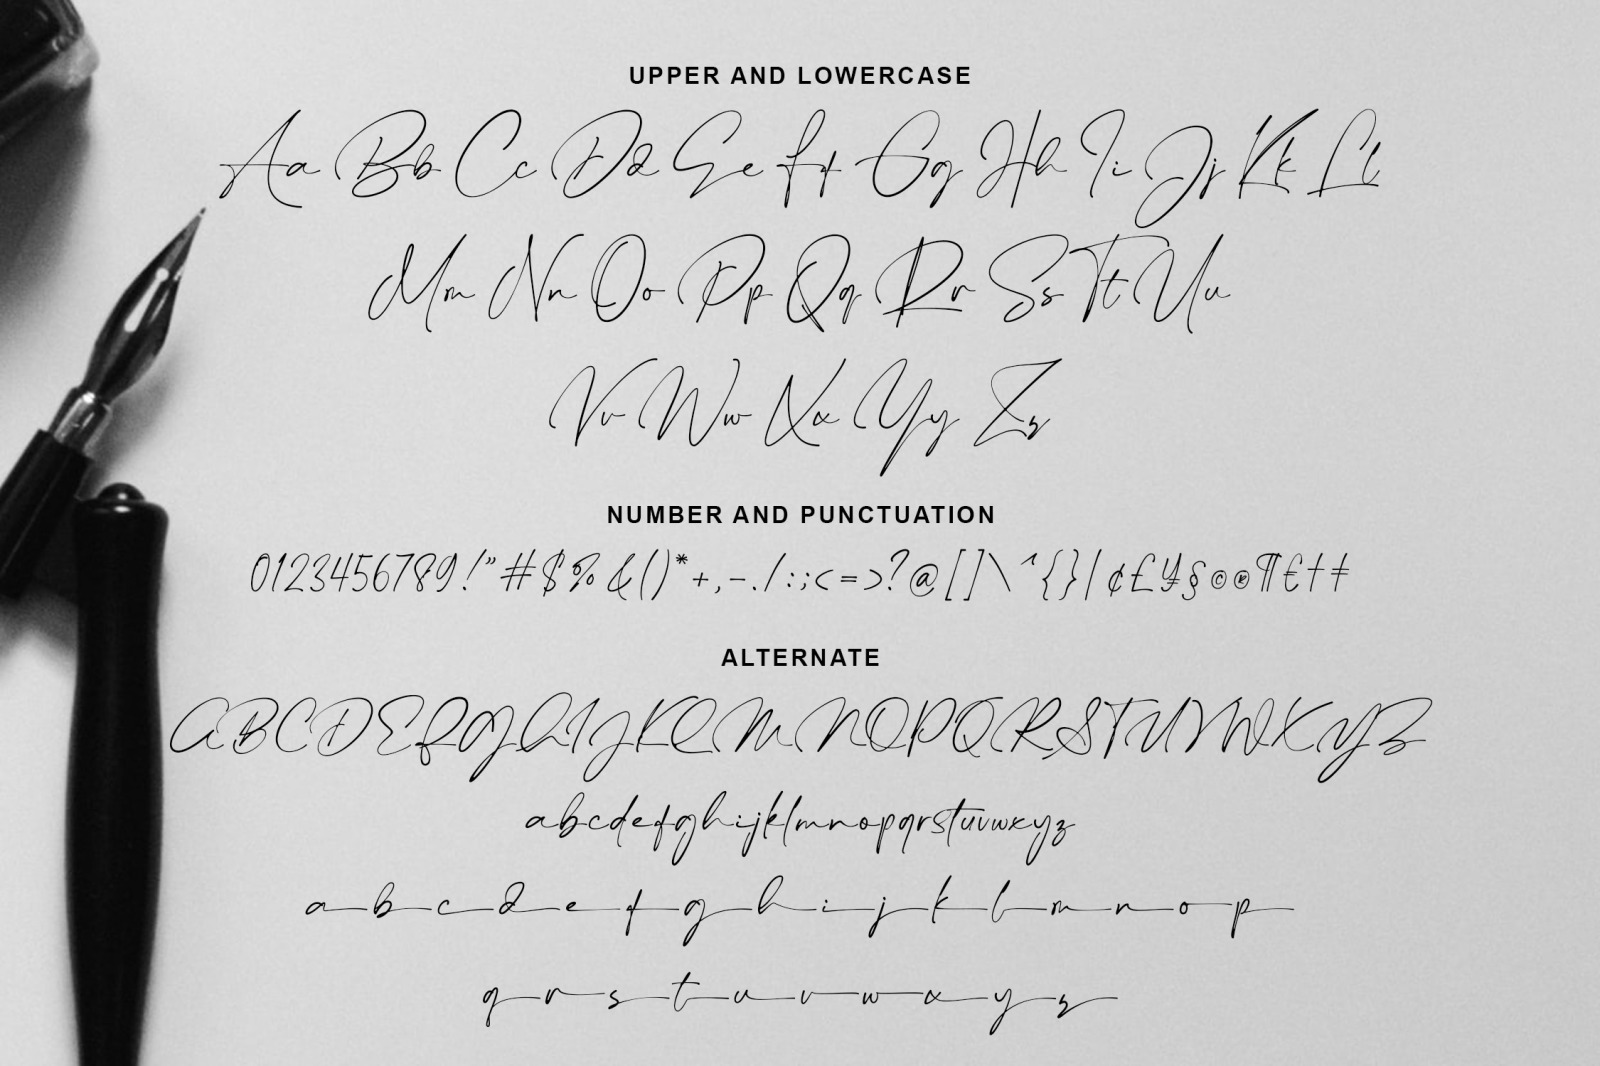 UPPER AND LOWERCASE
Aa Bb Cc Dd Ee Ff Gg Hh Ii Jj Kk Ll
Mm Nn Oo Pp Qq Rr Ss Tt Uu
Vv Ww Xx Yy Zz
NUMBER AND PUNCTUATION
0123456789!"#$%&()*+,-./:;<=>?@[]\^{}|¢£¥§©®¶€†‡
ALTERNATE
ABCDEFGHIJKLMNOPQRSTUVWXYZ
abcdefghijklmnopqrstuvwxyz
abcdefghijklmnop
qrstuvwxyz